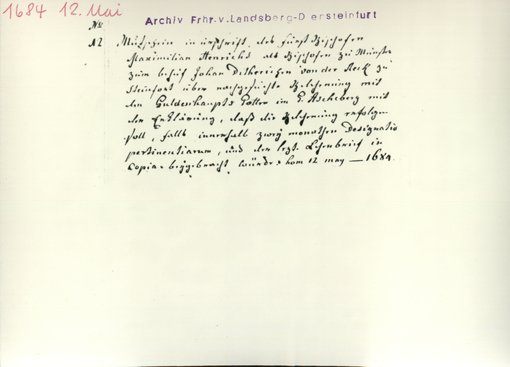 1684 12. Mai
Archiv Frhr. v. Landsberg-D ersteinfurt
No
A2 Muthschein in urschrift, des Fürst Bischofen
Maximilian Henrichs als Bischofen zu Münster
zum behuf Johan Ditherichen von der Reck zu
Steinfort über nachgesuchte Belehnung mit
den Guldenhaupts Gütter im K. Ascheberg mit
der Erklärung, daß die Belehnung erfolgen
soll, falls innerhalb zwey monathen Designatio
pertinentiarum, und der lezt. Lehenbrief in
Copia beygebracht würde vom 12 may — 1684.